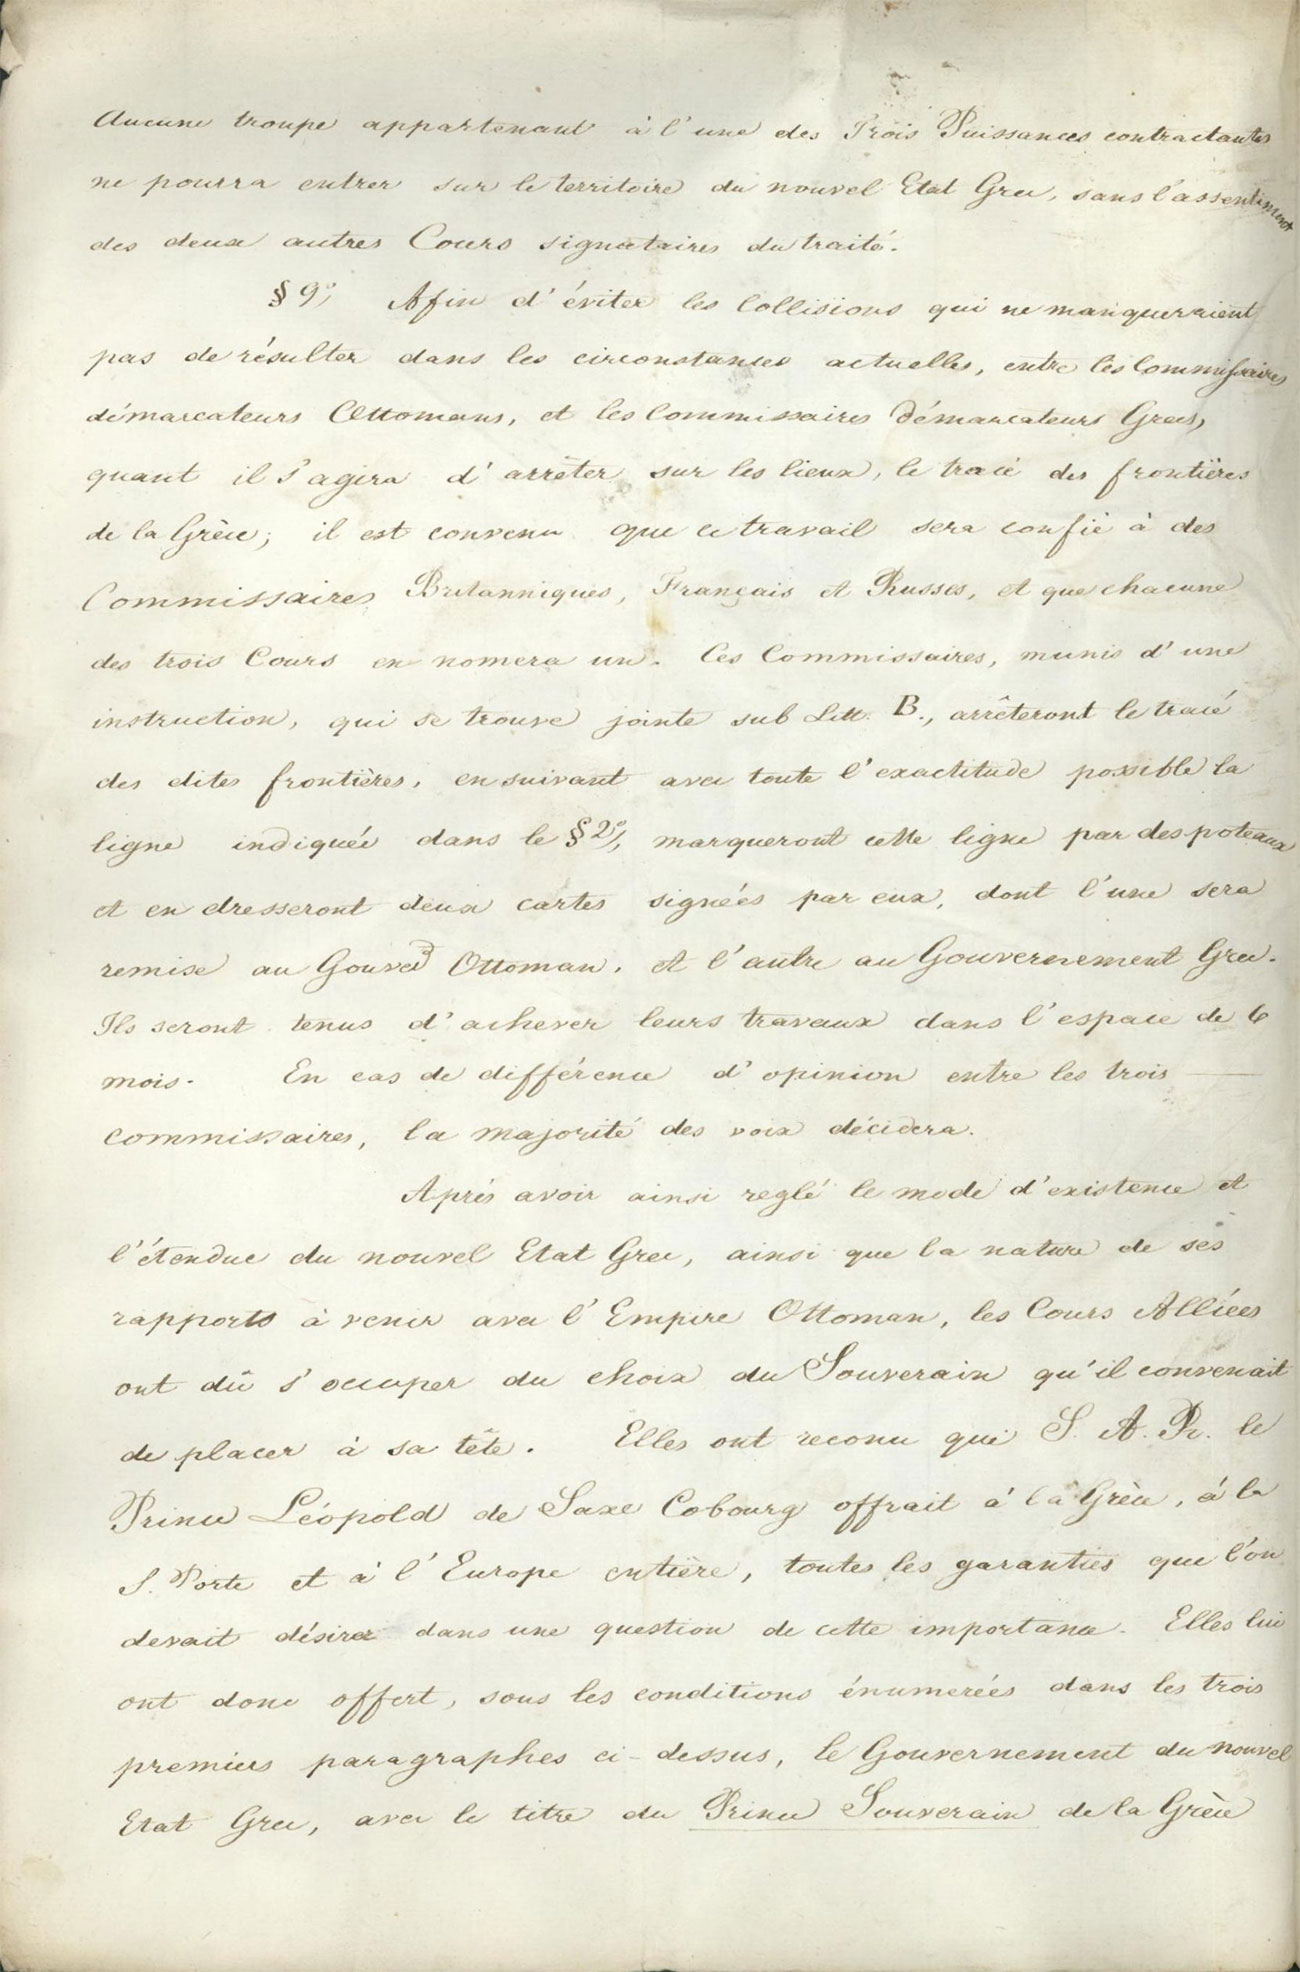 Aucune troupe appartenant à l'une des Trois Puissances contractantes
ne pourra entrer sur le territoire du nouvel Etat Grec, sans l'assentiment
des deux autres Cours signataires du traité.
§ 9º, Afin d'éviter les Collisions qui ne manqueraient
pas de résulter dans les circonstances actuelles, entre les Commissaires
démarcateurs Ottomans, et les Commissaires démarcateurs Grecs,
quant il s'agira d'arrêter sur les lieux, le tracé des frontières
de la Grèce; il est convenu que ce travail sera confié à des
Commissaires Britanniques, Français et Russes, et que chacune
des trois Cours en nomera un. Ces Commissaires, munis d'une
instruction, qui se trouve jointe sub Litt. B., arrêteront le tracé
des dites frontières, en suivant avec toute l'exactitude possible la
ligne indiquée dans le § 2º, marqueront cette ligne par des poteaux
et en dresseront deux cartes signées par eux, dont l'une sera
remise au Gouvert Ottoman, et l'autre au Gouvernement Grec.
Ils seront tenus d'achever leurs travaux dans l'espace de 6
mois. En cas de différence d'opinion entre les trois
commissaires, la majorité des voix décidera.
Aprés avoir ainsi reglé le mode d'existence et
l'étendue du nouvel Etat Grec, ainsi que la nature de ses
rapports à venir avec l'Empire Ottoman, les Cours Alliées
ont dû s'occuper du choix du Souverain qu'il convenait
de placer à sa tête. Elles ont reconu que S. A. R. le
Prince Léopold de Saxe Cobourg offrait á la Grèce, á la
S. Porte et à l'Europe entière, toutes les garanties que l'on
devait désirer dans une question de cette importance. Elles lui
ont donc offert, sous les conditions énumerées dans les trois
premiers paragraphes ci-dessus, le Gouvernement du nouvel
Etat Grec, avec le titre du Prince Souverain de la Grèce